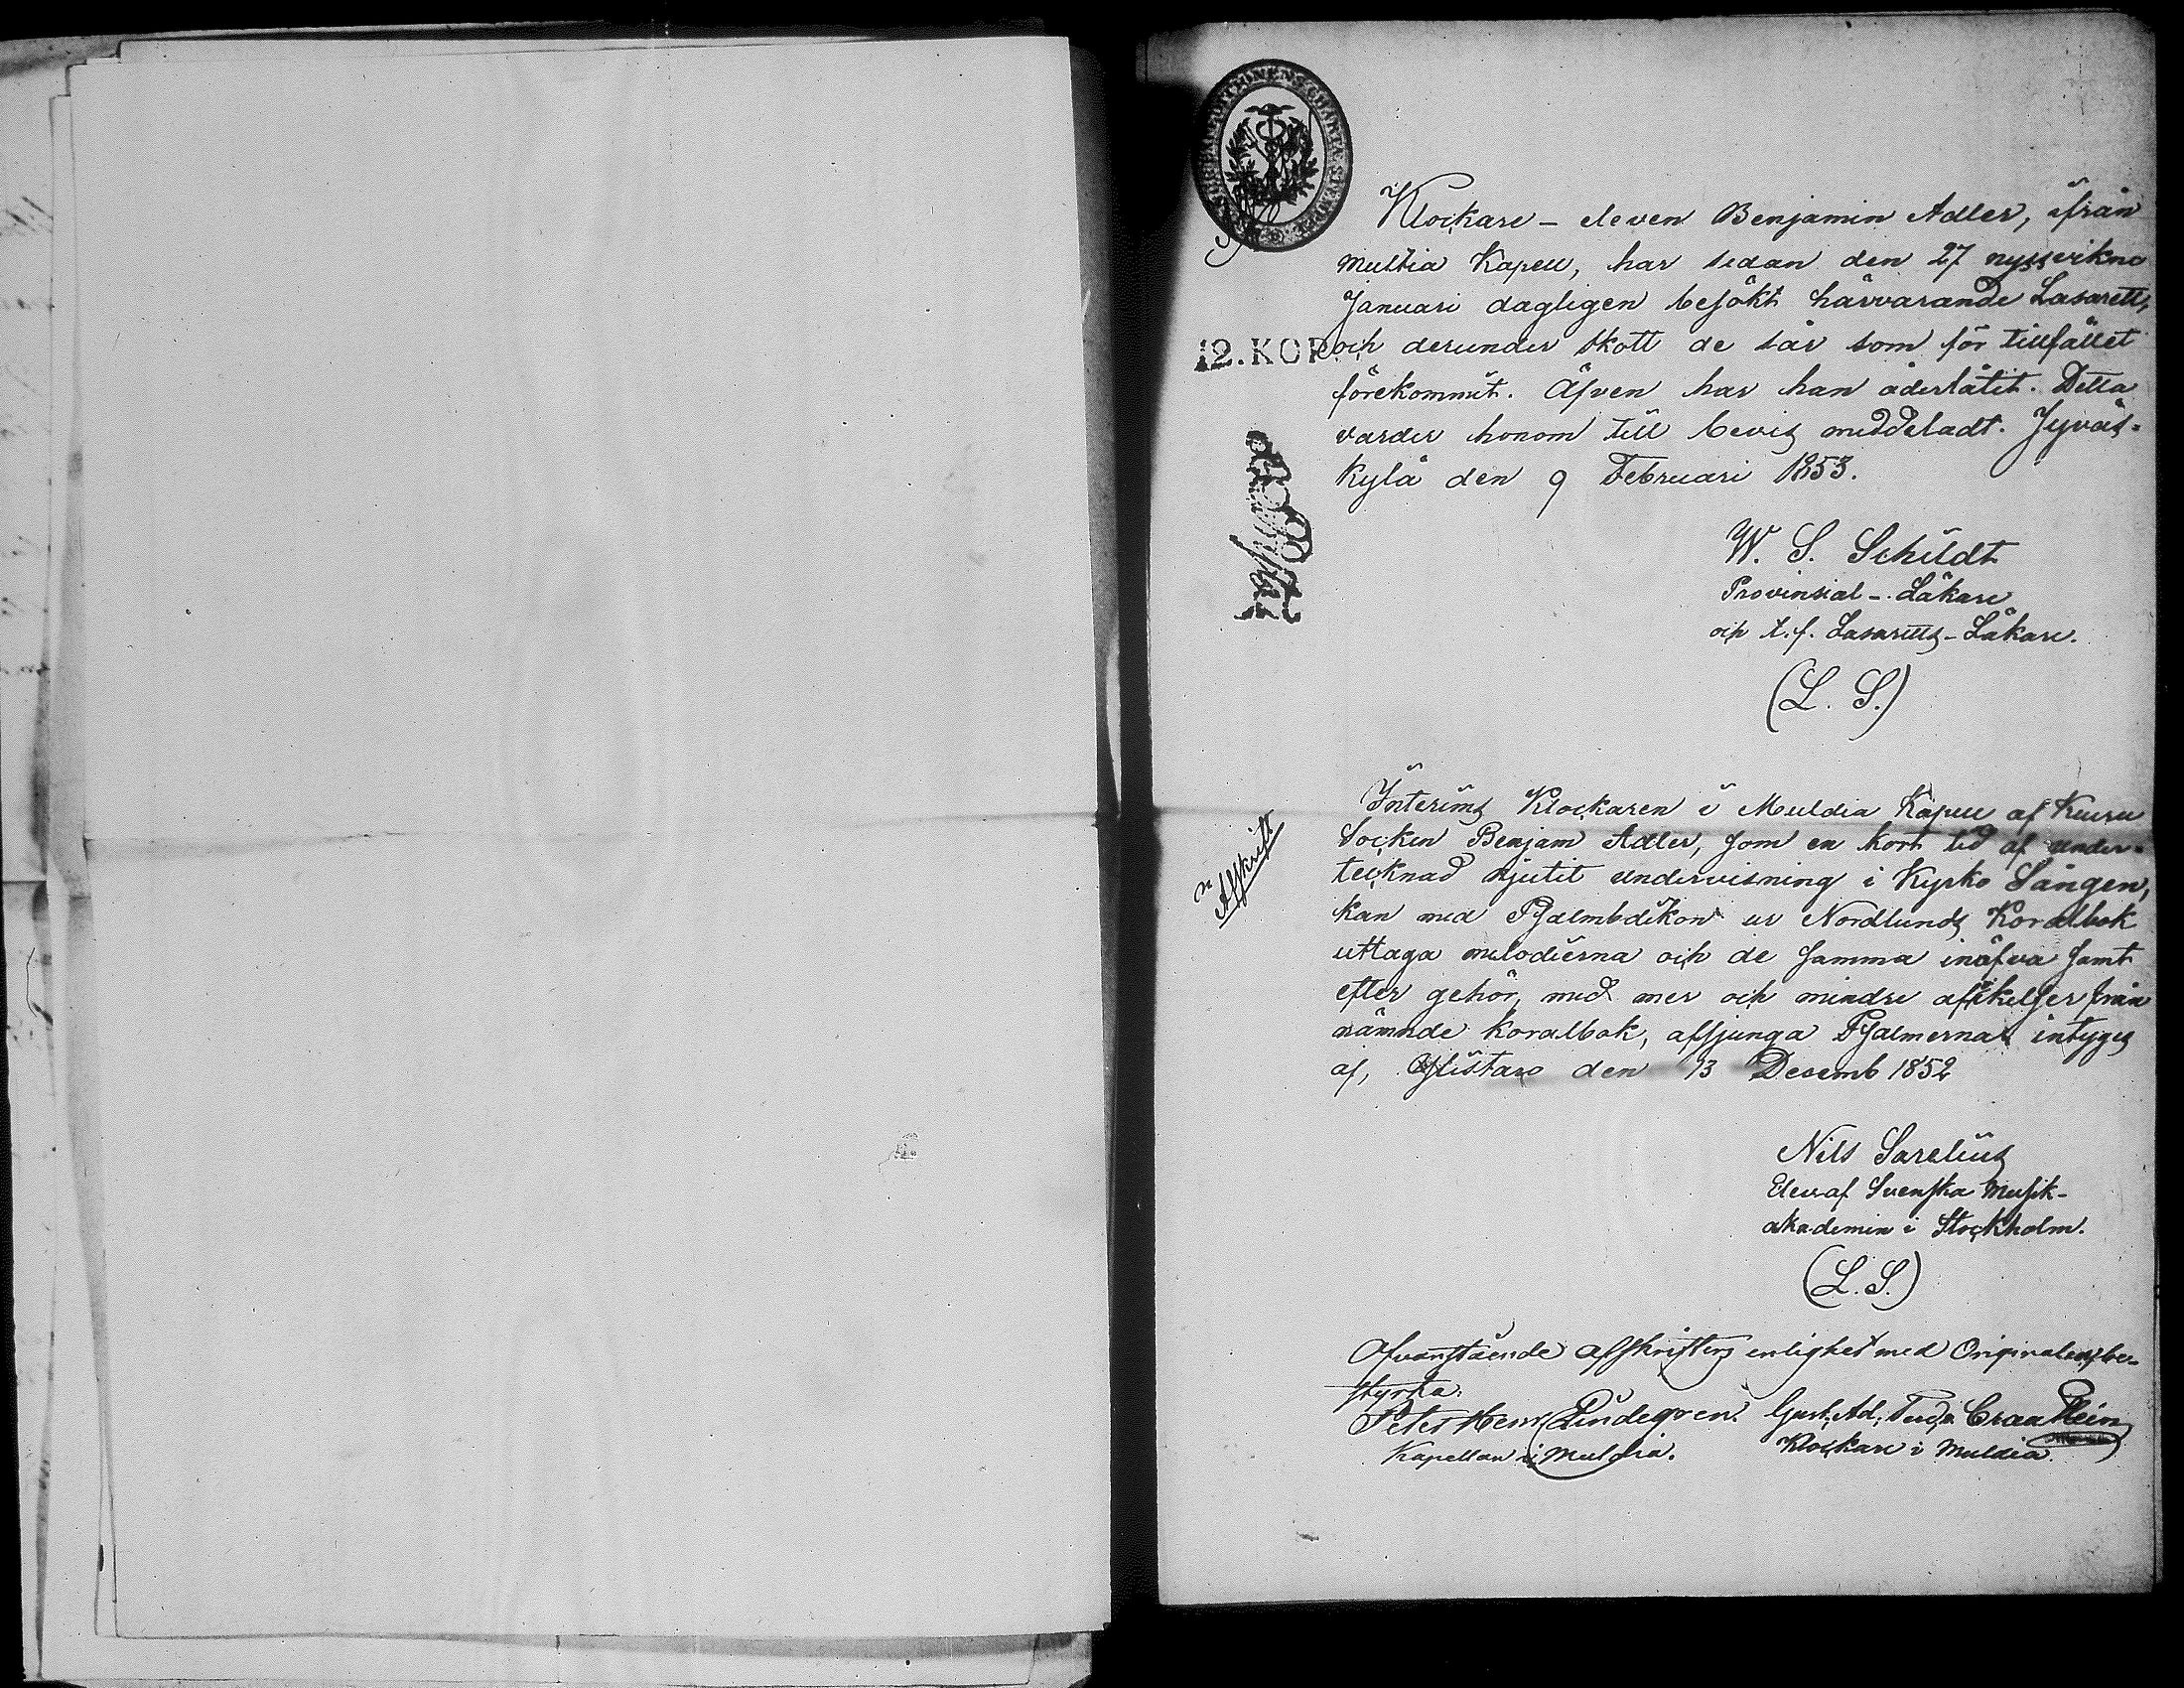 Klockare-eleven Benjamin Adler, ifrån
Multia Kapell, har sedan den 27 nyssvikne
Januari dagligen besökt härvarande Lasarett,
12.KOP.
och derunder skött de sår som för tillfället
förekommit. Äfven har han åderlåtit. Detta
varder honom till bevis meddeladt. Jyväs-
kylä den 9 Februari 1853.
W. S. Schildt
Provinsial-Läkare
och t.f. Lasaretts-Läkare.
(L. S.)
Afskrift
Interims Klockaren i Muldia Kapell af Keuru
Socken Benjam Adler, som en kort tid af under-
tecknad njutit undervisning i Kyrko Sången,
kan med Psalmodikon ur Nordlunds Koralbok
uttaga melodierna och de samma inöfva samt
efter gehör, med mer och mindre afvikelser från
nämnde Koralbok, afsjunga Psalmerna intygas
af, Ylistaro den 13 Decemb 1852
Nils Sarelius
Elev af Svenska Musik-
akademin i Stockholm.
(L. S.)
Ofvanstående afskrifters enlighet med Originalen, be-
styrka:
Peter Henr Lindegren. Gust. Ad. Ferd.
Kapellan i Muldia. Klockare i Muldia.